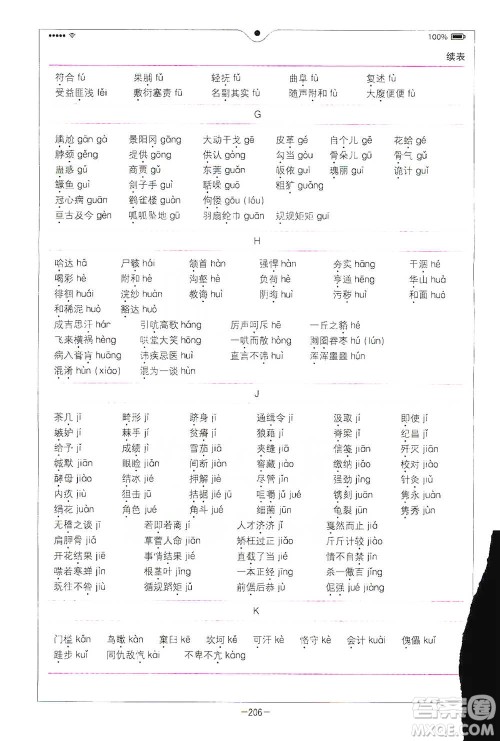 100%
续表
符合 fú 果脯 fǔ 轻抚 fǔ 曲阜 fù 复述 fù
受益匪浅 fěi 敷衍塞责 fū 名副其实 fù 随声附和 fù 大腹便便 fù
G
尴尬 gān gà 景阳冈 gāng 大动干戈 gē 皮革 gé 自个儿 gě 花蛤 gé
脖颈 gěng 提供 gōng 供认 gòng 勾当 gòu 骨朵儿 gū 骨气 gǔ
蛊惑 gǔ 商贾 gǔ 东莞 guǎn 皈依 guī 瑰丽 guī 诡计 guǐ
鳜鱼 guì 刽子手 guì 聒噪 guō 粗犷 guǎng
冠心病 guān 鹳雀楼 guàn 佝偻 gōu (lóu)
亘古及今 gèn 呱呱坠地 gū 羽扇纶巾 guān 规规矩矩 guī
H
哈达 hǎ 尸骸 hái 颔首 hàn 强悍 hàn 夯实 hāng 干涸 hé
喝彩 hè 附和 hè 沟壑 hè 负荷 hè 亨通 hēng 华山 huà
徘徊 huái 浣纱 huàn 教诲 huì 阴晦 huì 污秽 huì 和面 huó
和稀泥 huò 豁达 huò
成吉思汗 hán 引吭高歌 háng 厉声呵斥 hē 一丘之貉 hé
飞来横祸 hèng 哄堂大笑 hōng 一哄而散 hòng 囫囵吞枣 hú
病入膏肓 huāng 讳疾忌医 huì 直言不讳 huì 浑浑噩噩 hún
混淆 hùn (xiáo) 混为一谈 hùn
J
茶几 jī 畸形 jī 跻身 jī 通缉令 jī 汲取 jí 即使 jí
嫉妒 jí 棘手 jí 贫瘠 jí 狼藉 jí 脊梁 jǐ 纪昌 jǐ
给予 jǐ 成绩 jì 雪茄 jiā 夹缝 jiā 信笺 jiān 歼灭 jiān
缄默 jiān 眼睑 jiǎn 间断 jiàn 窖藏 jiào 缴纳 jiǎo 校对 jiào
酵母 jiào 结冰 jié 押解 jiè 尽管 jǐn 强劲 jìng 针灸 jiǔ
内疚 jiù 狙击 jū 拮据 jié jū 咀嚼 jǔ jué 镌刻 juān 隽永 juàn
绢花 juàn 角色 jué 角斗 jué 细菌 jūn 龟裂 jūn 隽秀 jùn
无稽之谈 jī 若即若离 jí 人才济济 jǐ 戛然而止 jiá
肩胛骨 jiǎ 草菅人命 jiān 矫枉过正 jiǎo 斤斤计较 jiào
开花结果 jiē 事情结果 jié 直截了当 jié 情不自禁 jīn
噤若寒蝉 jìn 根茎叶 jīng 一本正经 jīng 杀一儆百 jǐng
既往不咎 jiù 循规蹈矩 jǔ 前倨后恭 jù 倔强 jué jiàng
K
门槛 kǎn 鸟瞰 kàn 窠臼 kē 坎坷 kě 可汗 kè 恪守 kè 会计 kuài 傀儡 kuǐ
跬步 kuǐ 同仇敌忾 kài 不卑不亢 kàng
—206—
答案圈
MXQE.COM